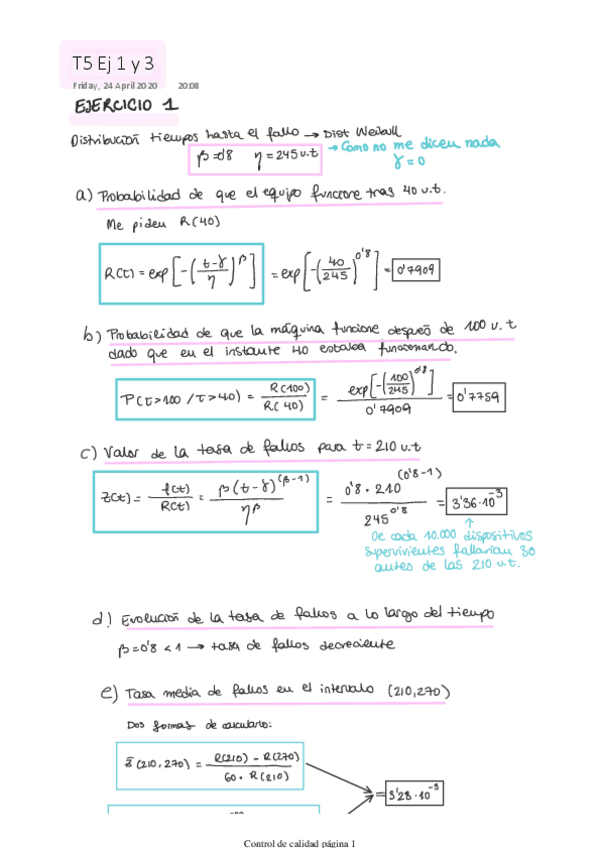 T5 Ej 1 y 3
Friday, 24 April 2020 20:08
EJERCICIO 1
Distribución tiempos hasta el fallo → Dist Weibull
β=0'8 η=245 u.t → Como no me dicen nada
γ=0
a) Probabilidad de que el equipo funcione tras 40 u.t.
Me piden R(40)
R(t) = exp[-((t-γ)/η)^β] = exp[-(40/245)^0'8] = 0'7909
b) Probabilidad de que la máquina funcione después de 100 u.t
dado que en el instante 40 estaba funcionando.
P(τ>100 / τ>40) = R(100)/R(40) = exp[-(100/245)^0'8] / 0'7909 = 0'7759
c) Valor de la tasa de fallos para t=210 u.t
z(t) = f(t)/R(t) = β(t-γ)^(β-1) / η^β = 0'8 · 210^(0'8-1) / 245^0'8 = 3'36·10^-3
De cada 10.000 dispositivos
supervivientes fallarían 30
antes de las 210 u.t.
d) Evolución de la tasa de fallos a lo largo del tiempo
β=0'8 < 1 → tasa de fallos decreciente
e) Tasa media de fallos en el intervalo (210,270)
Dos formas de calcularlo:
z̄(210,270) = R(210) - R(270) / 60 · R(210) = 3'28·10^-3
Control de calidad página 1